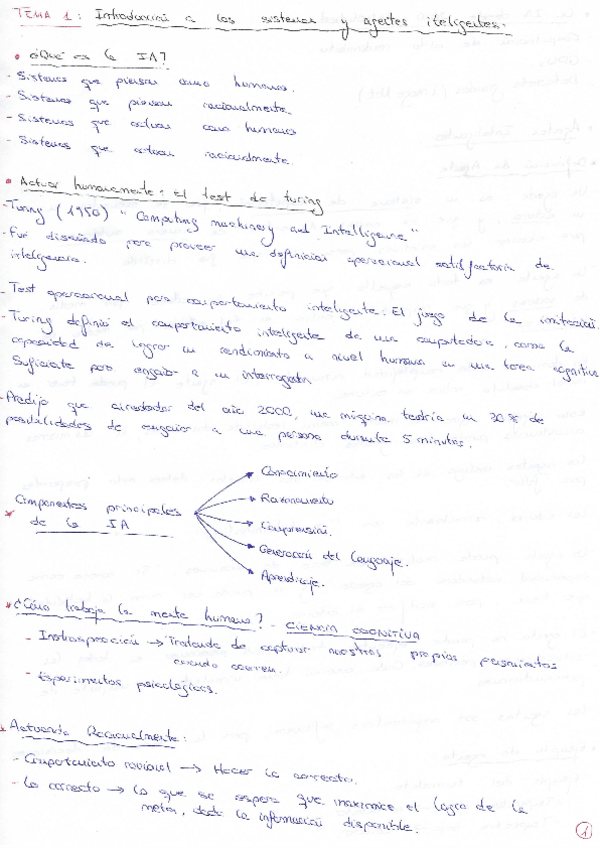 TEMA 1: Introducción a los sistemas y agentes iteligentes.
• ¿Qué es la IA?
- Sistemas que piensan como humanos.
- Sistemas que piensan racionalmente.
- Sistemas que actuan como humanos
- Sistemas que actuan racionalmente.
• Actuar humanamente: el test de turing
- Turing (1950) "Computing machinery and Intelligence"
- Fue diseñado para proveer una definicion operacional satisfactoria de
inteligencia.
- Test operacional para comportamiento inteligente: El juego de la imitación.
- Turing definió el comportamiento inteligente de una computadora, como la
capacidad de lograr un rendimiento a nivel humano en una tarea cognitiva
suficiente para engañar a un interrogador.
- Predijo que alrededor del año 2000, una máquina tendría un 30% de
posibilidades de engañar a una persona durante 5 minutos.
* Componentes principales
de la IA
Conocimiento
Razonamiento
Comprensión.
Generación del lenguaje.
Aprendizaje.
* ¿Cómo trabaja la mente humana? - CIENCIA COGNITIVA
- Introspección → Tratando de capturar nuestros propios pensamientos
cuando ocurren.
- Experimentos psicológicos.
* Actuando Racionalmente:
- Comportamiento racional → Hacer lo correcto.
- Lo correcto → Lo que se espera que maximice el logro de la
meta, dada la información disponible.
1